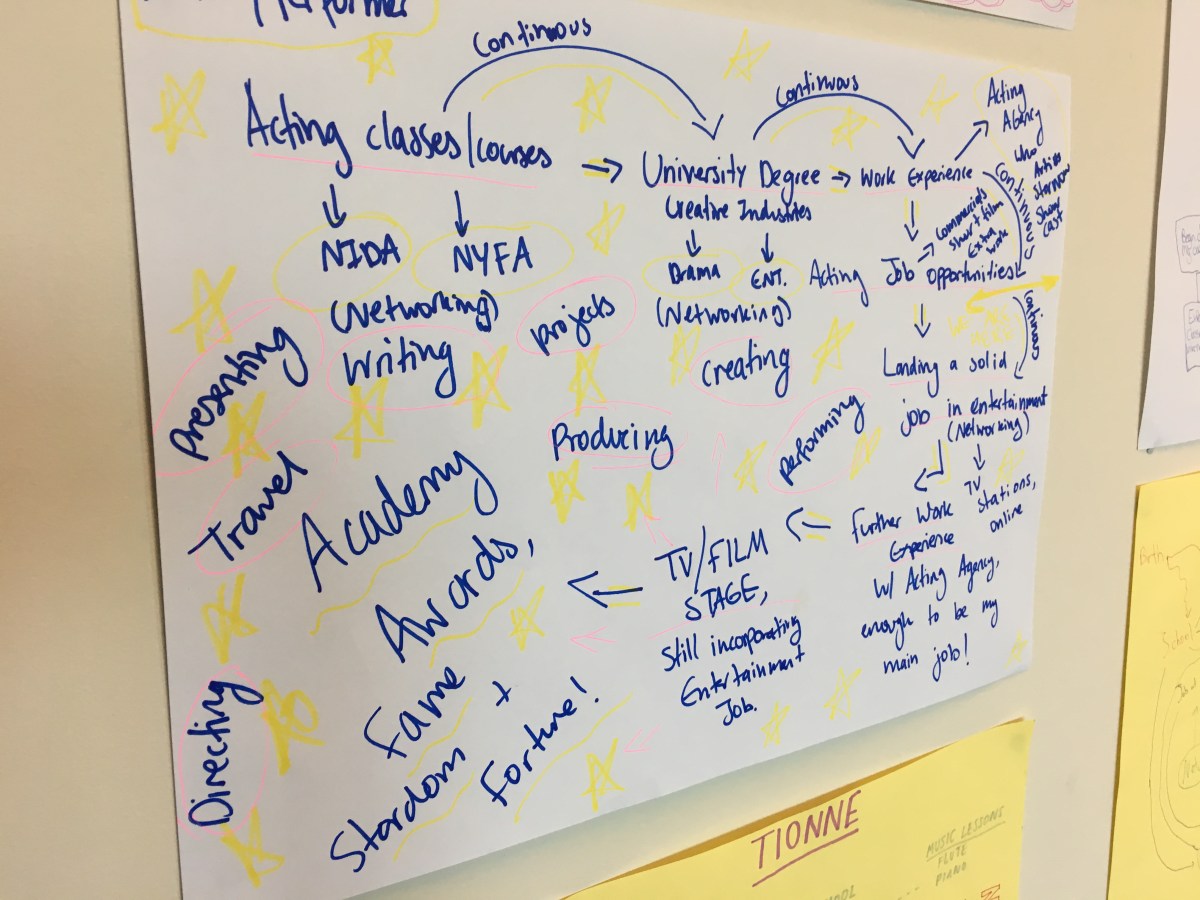 Performer
Continuous
Acting classes/courses
NIDA
NYFA
(Networking)
Writing
Projects
Presenting
Travel
Continuous
University Degree
Creative Industries
Drama
ENT.
(Networking)
Creating
Producing
Performing
Work Experience
Acting
Agency
who
Continuous
Show
Cast
Commercials
Short film
Extra
work
Acting Job opportunities
Continuous
Landing a solid
job in entertainment
(Networking)
TV
Stations,
online
Further Work
Experience
W/ Acting Agency,
enough to be my
main job!
TV/FILM
STAGE,
Still incorporating
Entertainment
Job.
Academy
Awards,
Fame +
Stardom
Fortune!
Directing
TIONNE
MUSIC LESSONS
FLUTE
PIANO